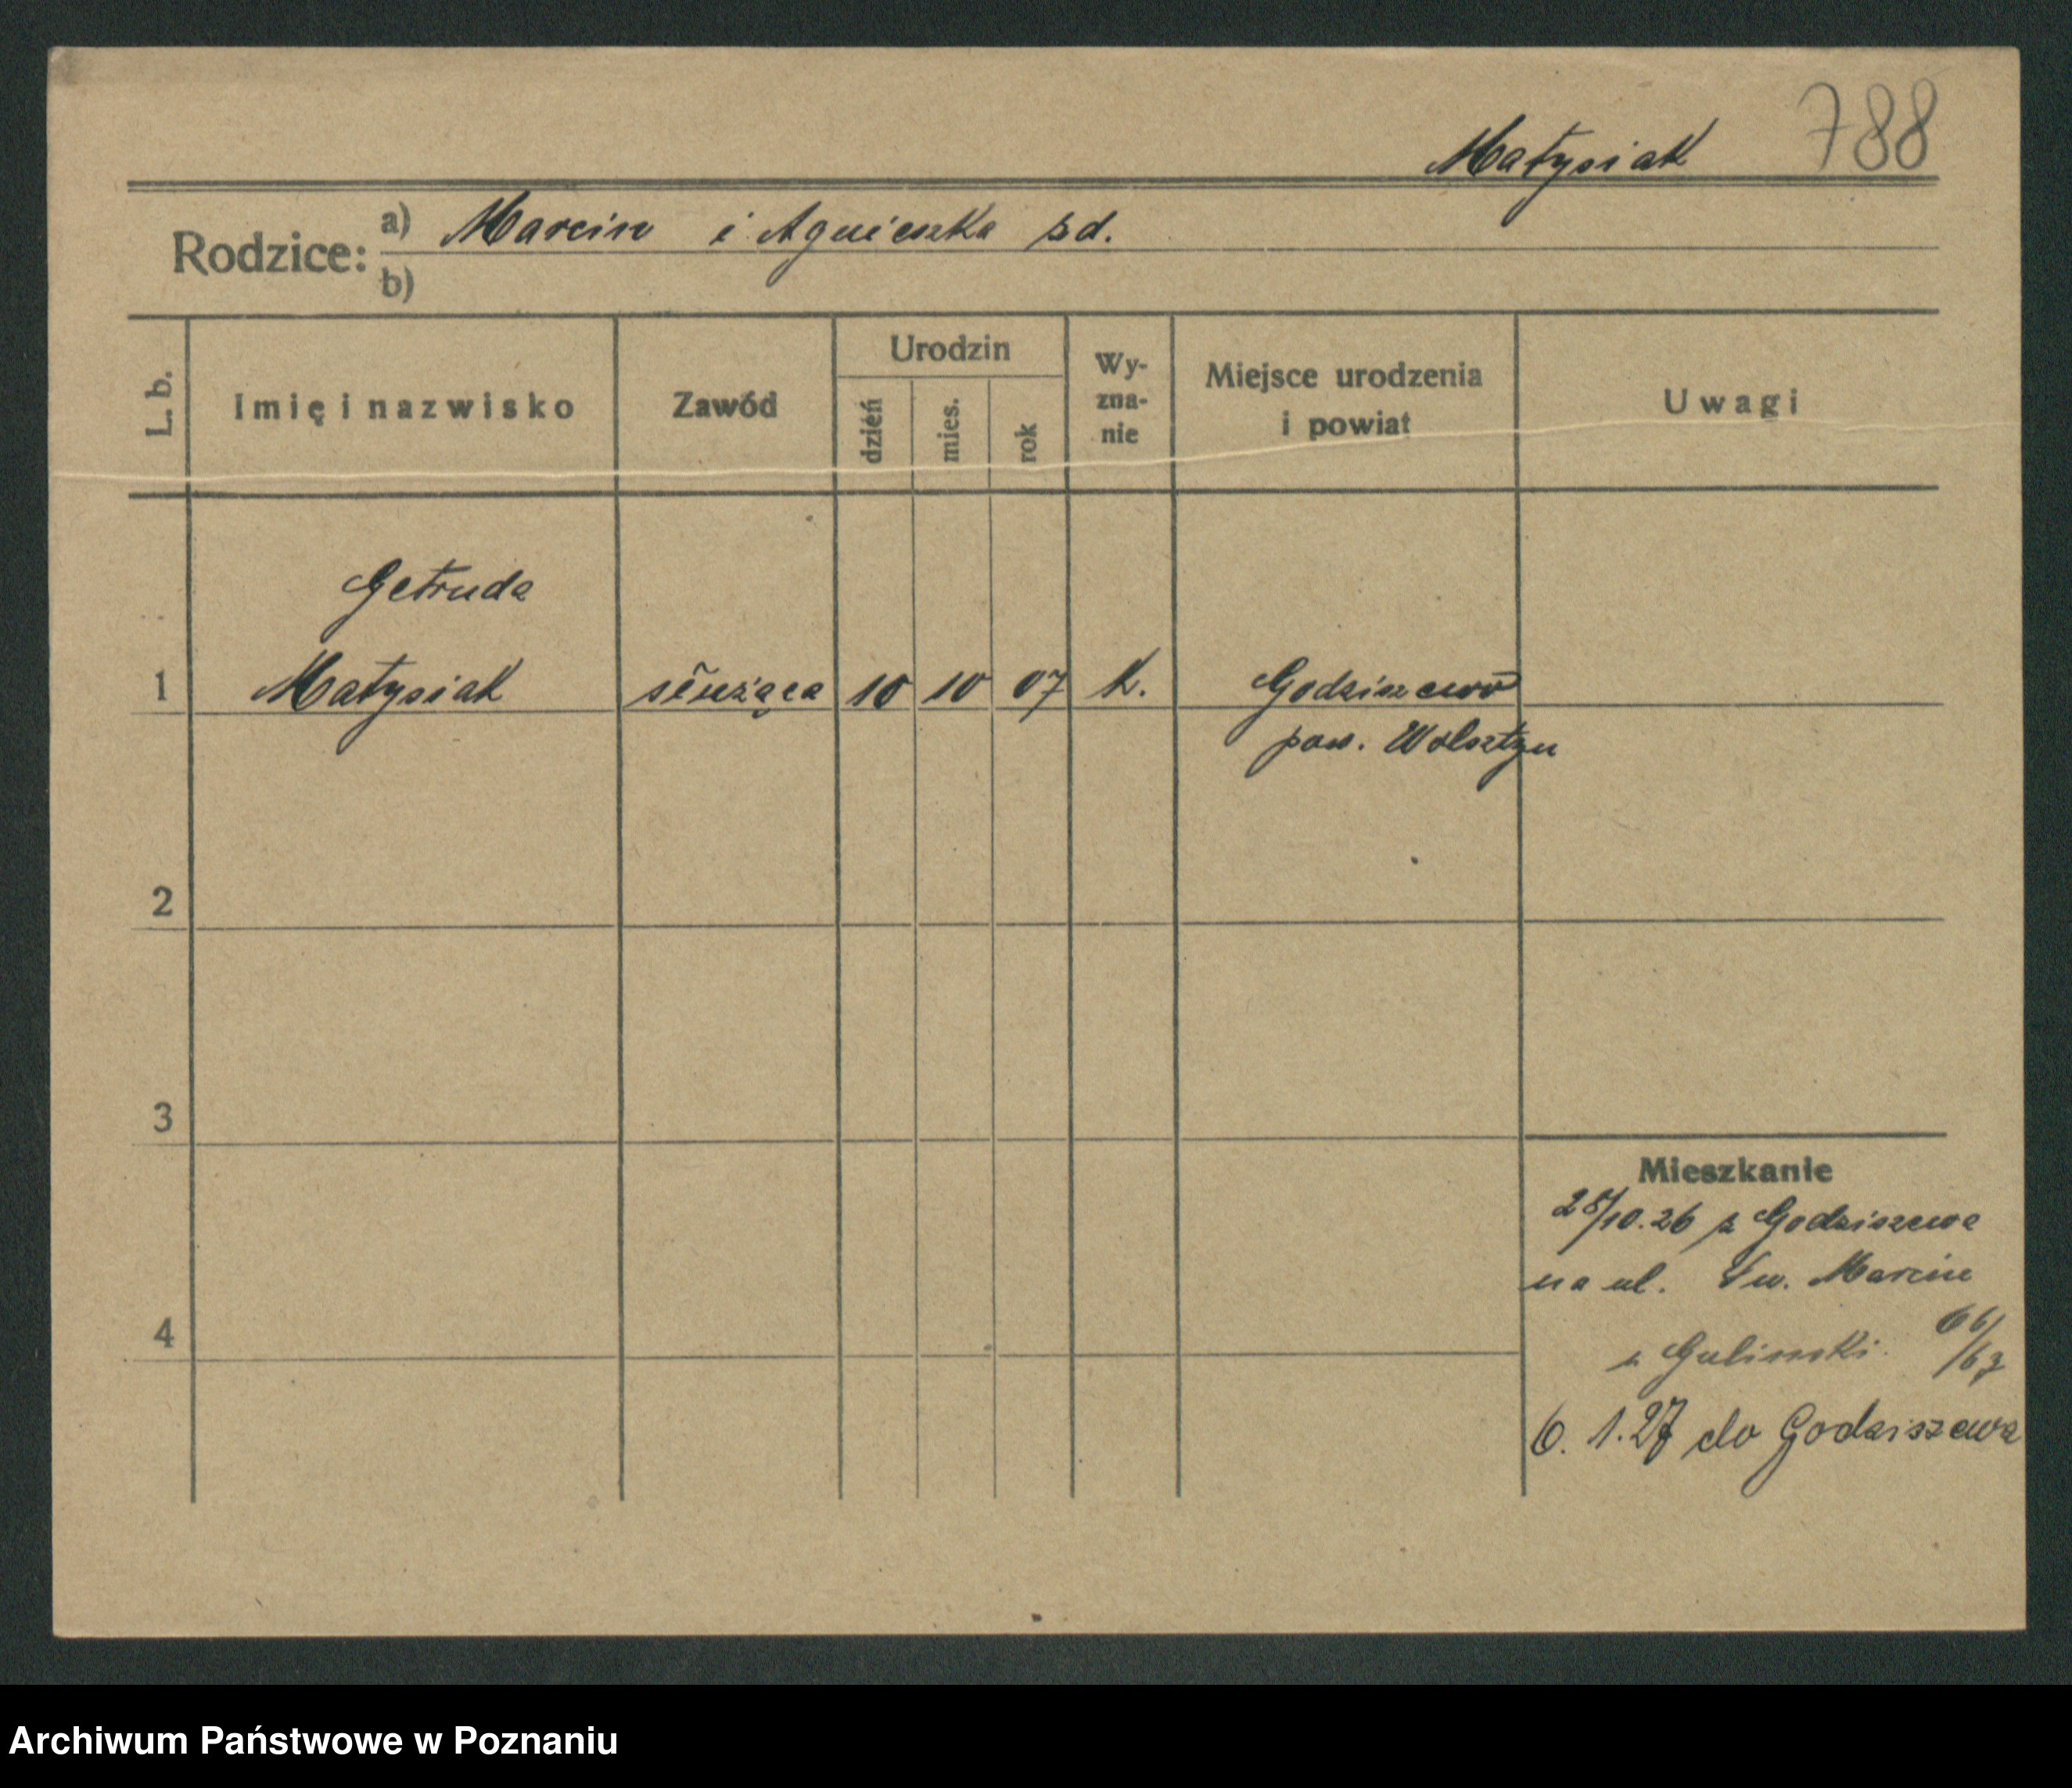 788
Matysiak
Rodzice:
a) Marcin i Agnieszka sd.
b)
L. b.
Imię i nazwisko
Zawód
Urodzin
dzień
mies.
rok
Wy-
zna-
nie
Miejsce urodzenia
i powiat
Uwagi
Getruda
1 Matysiak służąca 10 10 07 K. Godziszewo
pow. Wolsztyn
2
3
4
Mieszkanie
28/10.26 z Godziszewa
na ul. Św. Marcin
66/67
6. 1. 27 do Godziszewa
Archiwum Państwowe w Poznaniu